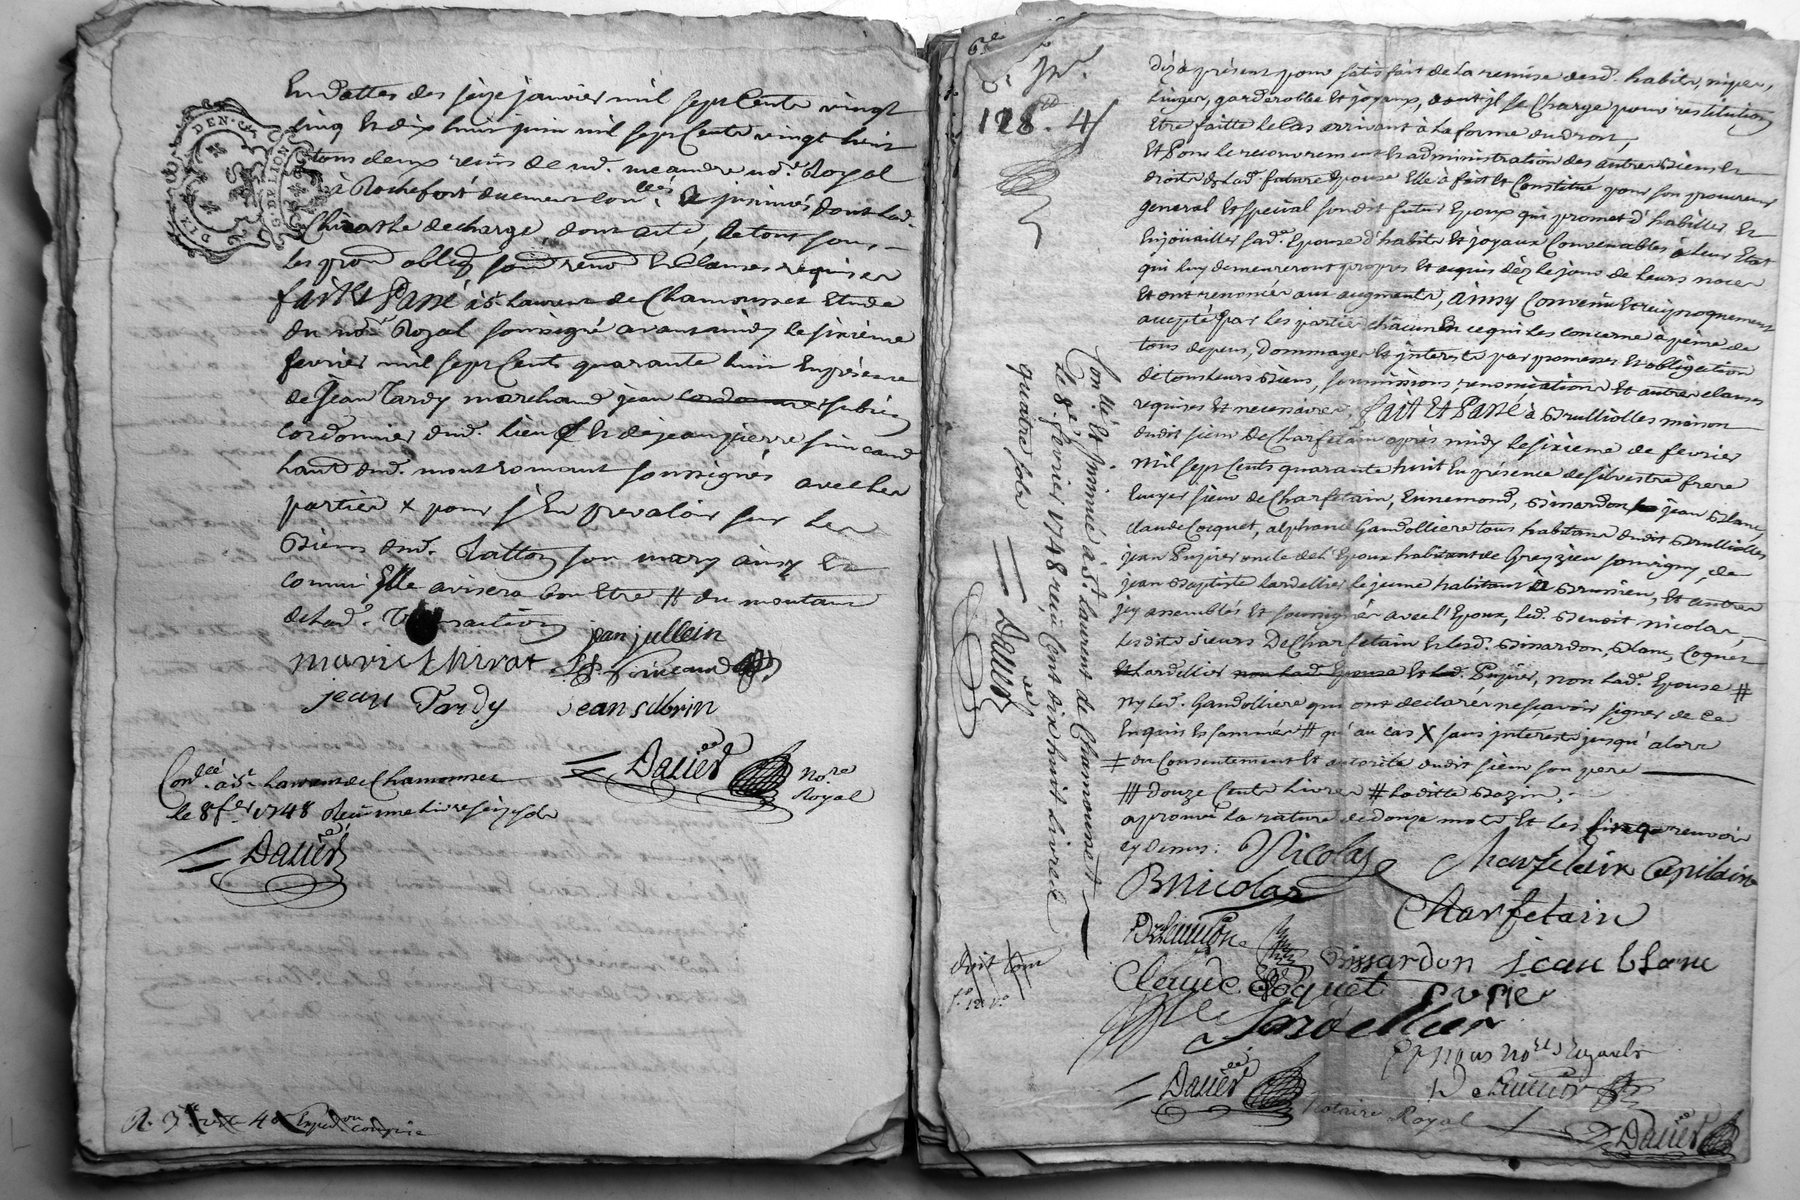 En dattes des seize janvier mil sept cents vingt
cinq et dix huit juin mil sept cents vingt huit
tous deux reçus de md. meandre nore. Royal
à Rochefort duement conllés. & insinués dont lad.
Chirat le decharge dont acte, le tout sous
les prod. obligd. soumd. renod. et clauses requises
fait et Passé à st. Laurent de Chamousset Etude
du nore. Royal soussigné avant midy le sixieme
fevrier mil sept cents quarante huit En présence
de Jean Tardy marchand jean cordonnier subrin
cordonnier dud. lieu & de jean pierre simeand
hautd. dud. montromant soussignés avec les
parties x pour s'En prevaloir sur les
biens dud. son mary ainsy Et
comme Elle avisera bon Etre # du montant
de lad. Transaction
jean jullein
marie chirat simeand
jean Tardy jean subrin
Dauer
nore
Royal
Conllé. à st. Laurent de Chamousset
le 8 fer. 1748 Reçu une livre seize sols
Dauer
R. 3 Expedon
DEN
DE LION
128. 4
Conllé. Et Insinué à St. Laurent de Chamousset
le 8e. fevrier 1748 reçu Cent dix huit livres
quatre sols
Dauer
Droit
fo. vo.
Dèz à présent pour satisfait de la remise desd. habits, nipes,
linges, garderobbe Et joyaux, dont il se Charge pour restitution
Etre faitte le Cas arrivant à la forme du droit,
Et Pour le recouvrement Et administration des autres biens Et
droits de lad. future Epouse Elle à fait Et Constitué pour son procureur
general Et special sondit futur Epoux qui promet d'habiller Et
Enjoüailler sad. Epouse d'habits Et joyaux Convenables à leur Etat
qui luy demeureront propres Et aquis dèz le jour de leurs noces
Et ont renoncés aux augments, ainsy Convenu Et reciproquement
accepté par les parties chacun En ce qui les concerne à peine de
tous depens, dommages Et interests par promesses Et obligation
de tous leurs biens, soumissions renonciations Et autres clauses
requises Et necessaires, fait Et Passé à Brulliolles maison
dudit sieur De Charfetain après midy le sixieme de fevrier
mil sept Cents quarante huit En présence de silvestre frere
Ecuyer sieur de Charfetain, Ennemond, Bissardon jean Blanc
claude Coquet, alphonce Gandolliere tous habitans dudit Brulliolles
jean Pupier oncle de l'Epoux habitant de Greyzieu souvigny, de
jean Baptiste Lardellier le jeune habitant de Brussieu, Et autres
icy assemblés Et soussignés avec l'Epoux, led. Benoit nicolas,
lesdits sieurs De Charfetain Et lesd. Bissardon, Blanc, Coquet
Lardellier non lad. Epouse Et led. Pupier, non lad. Epouse #
ny led. Gandolliere qui ont déclarés ne sçavoir signer de ce
Enquis Et sommés # qu'au cas X sans interests jusqu'alors
‡ du Consentement Et autorité dudit sieur son pere
# douze Cents livres # laditte Bazin,
aprouvé la rature de donze mots Et les renvois
cy dessus:
Nicolas Charfetain
BNicolas Charfetain
Bissardon jean blanc
Claude Coquet Pupier
Lardellier
Dauer
notaire Royal
Dauer